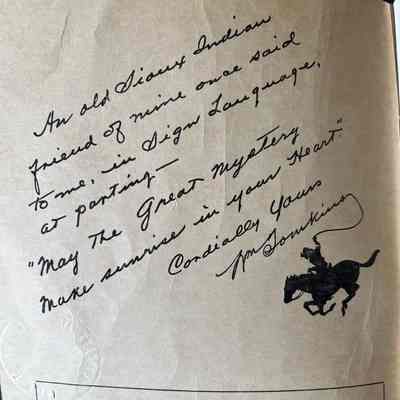 An old Sioux Indian
friend of mine once said
to me, in Sign Language,
at parting—
"May The Great Mystery
make sunrise in your Heart."
Cordially Yours
Wm Tomkins